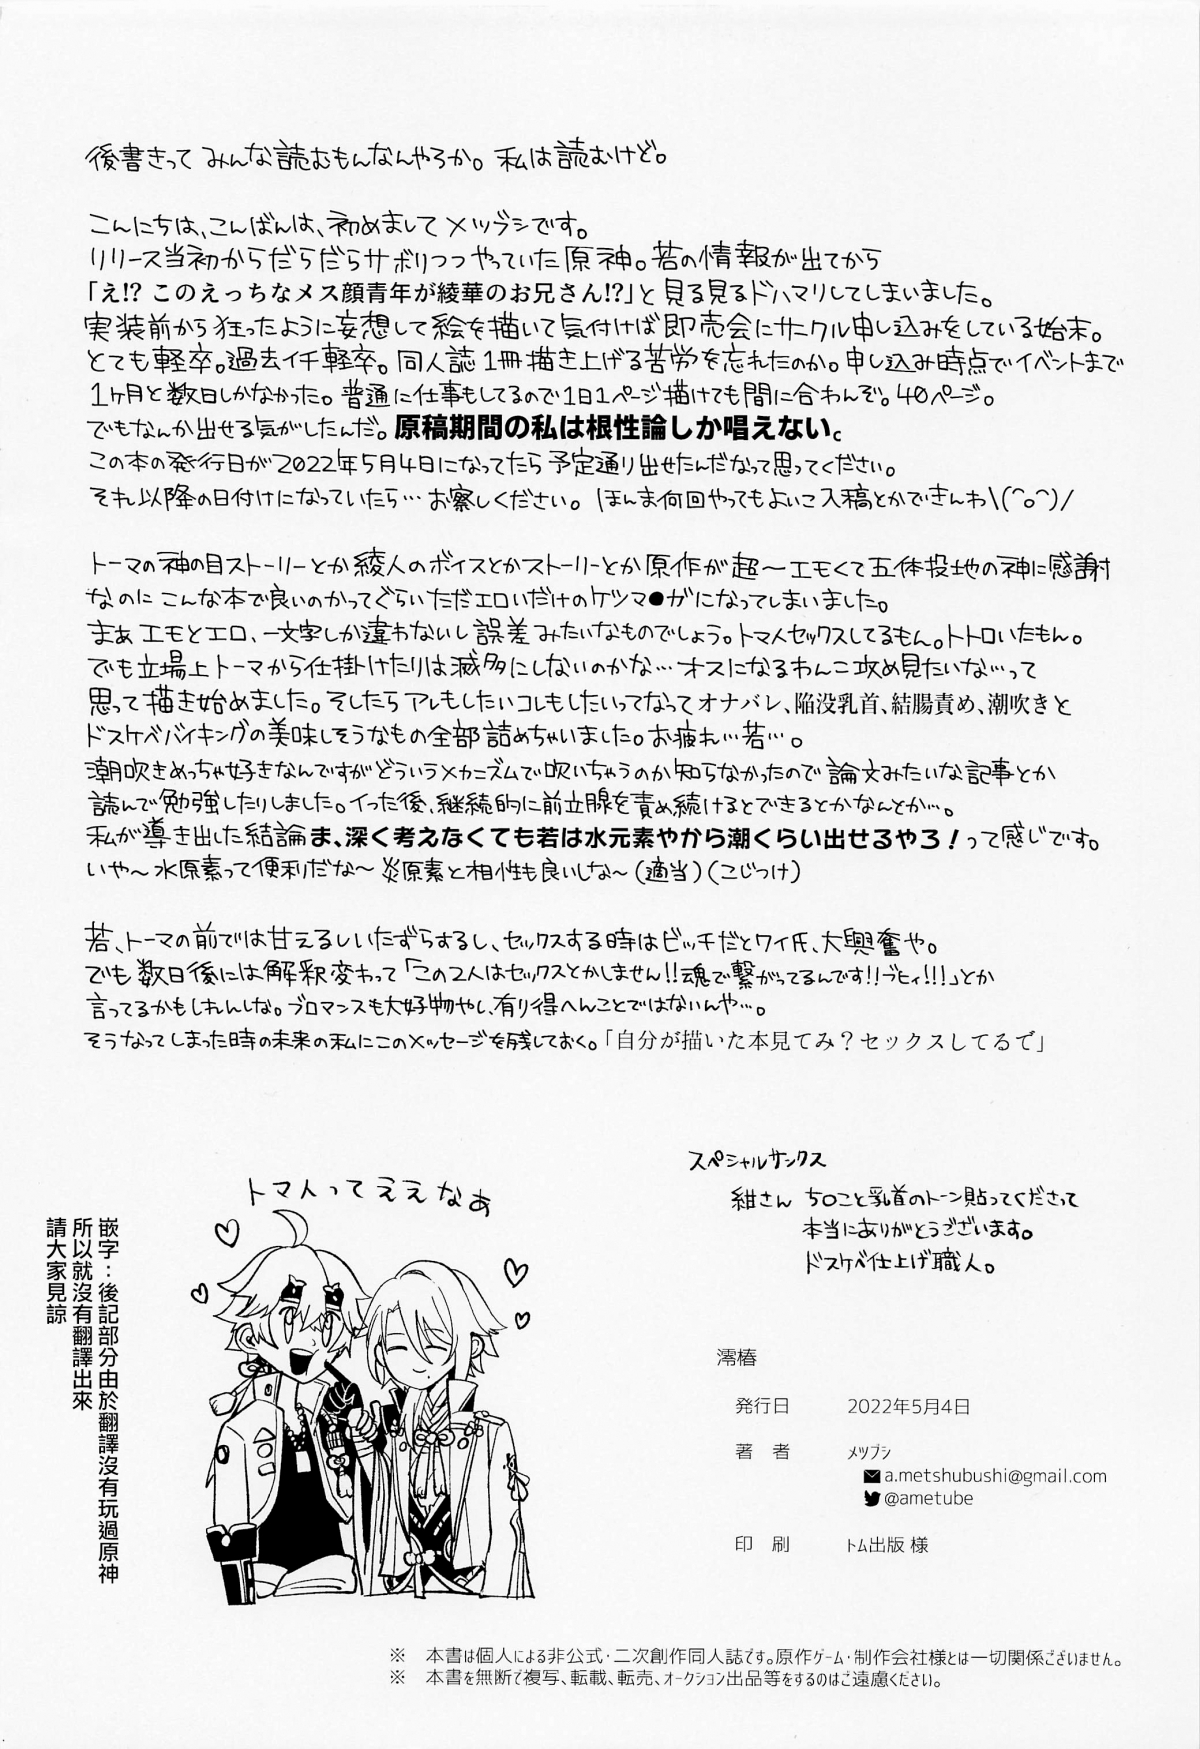 後書きって みんな読むもんなんやろか。私は読むけど。
こんにちは、こんばんは、初めましてメツブシです。
リリース当初からだらだらサボりつつやっていた原神。若の情報が出てから
「え!? このえっちなメス顔青年が綾華のお兄さん!?」と見る見るドハマりしてしまいました。
実装前から狂ったように妄想して絵を描いて気付けば即売会にサークル申し込みをしている始末。
とても軽卒。過去イチ軽卒。同人誌1冊描き上げる苦労を忘れたのか。申し込み時点でイベントまで
1ヶ月と数日しかなかった。普通に仕事もしてるので1日1ページ描けても間に合わんぞ。40ページ。
でもなんか出せる気がしたんだ。原稿期間の私は根性論しか唱えない。
この本の発行日が2022年5月4日になってたら予定通り出せたんだなって思ってください。
それ以降の日付けになっていたら…お察しください。ほんま何回やってもよいこ入稿とかできんわ\(^o^)/
トーマの神の目ストーリーとか綾人のボイスとかストーリーとか原作が超～エモくて五体投地の神に感謝
なのにこんな本で良いのかってぐらいただエロいだけのケツマ●ガになってしまいました。
まぁエモとエロ、一文字しか違わないし誤差みたいなものでしょう。トマ人セックスしてるもん。トトロいたもん。
でも立場上トーマから仕掛けたりは滅多にしないのかな…オスになるわんこ攻め見たいな…って
思って描き始めました。そしたらアレもしたいコレもしたいってなってオナバレ、陥没乳首、結腸責め、潮吹きと
ドスケベバイキングの美味しそうなもの全部詰めちゃいました。お疲れ…若…。
潮吹きめっちゃ好きなんですがどういうメカニズムで吹いちゃうのか知らなかったので論文みたいな記事とか
読んで勉強したりしました。イった後、継続的に前立腺を責め続けるとできるとかなんとか…。
私が導き出した結論ま、深く考えなくても若は水元素やから潮くらい出せるやろ！って感じです。
いや～水原素って便利だな～炎原素と相性も良いしな～(適当)(こじつけ)
若、トーマの前では甘えるしいたずらするし、セックスする時はビッチだとワイ氏、大興奮や。
でも数日後には解釈変わって「この2人はセックスとかしません!!魂で繋がってるんです!!ブヒィ!!!」とか
言ってるかもしれんしな。ブロマンスも大好物やし、有り得へんことではないんや…。
そうなってしまった時の未来の私にこのメッセージを残しておく。「自分が描いた本見てみ？セックスしてるで」
トマ人ってええなぁ
嵌字：後記部分由於翻譯沒有玩過原神
所以就沒有翻譯出來
請大家見諒
スペシャルサンクス
紺さん ち○こと乳首のトーン貼ってくださって
本当にありがとうございます。
ドスケベ仕上げ職人。
澪椿
発行日 2022年5月4日
著者 メツブシ
a.metshubushi@gmail.com
@ametube
印刷 トム出版 様
※ 本書は個人による非公式・二次創作同人誌です。原作ゲーム・制作会社様とは一切関係ございません。
※ 本書を無断で複写、転載、転売、オークション出品等をするのはご遠慮ください。